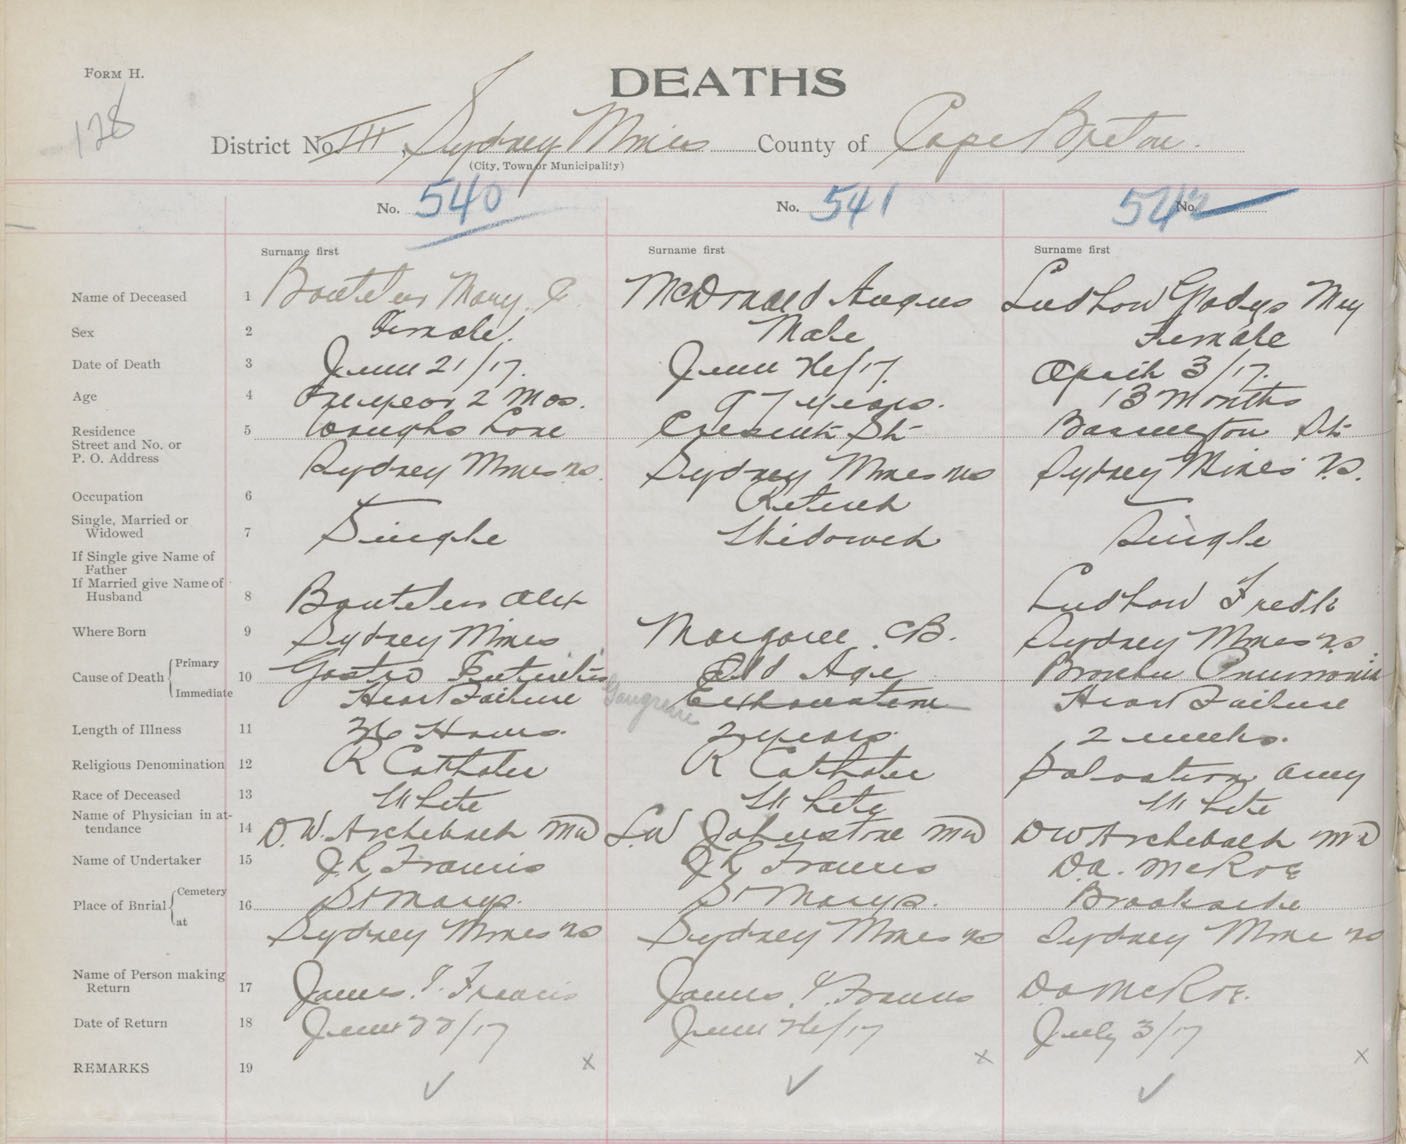 FORM H.
DEATHS
128
District No. III, Sydney Mines County of Cape Breton.
(City, Town or Municipality)
No. 540 No. 541 No. 542
Surname first Surname first Surname first
Name of Deceased 1 Mary McDonald Angus Ludlow Gladys May
Sex 2 Female Male Female
Date of Death 3 June 21/17. June 26/17. April 3/17.
Age 4 One year 2 Mos. 97 years. 13 Months
Residence
Street and No. or
P. O. Address
5 Lane Crescent St Barrington St
Sydney Mines NS. Sydney Mines NS Sydney Mines N.S.
Occupation 6 Retired
Single, Married or
Widowed
7 Single Widowed Single
If Single give Name of
Father
If Married give Name of
Husband
8 Alex Ludlow Fredk
Where Born 9 Sydney Mines Margaree C.B. Sydney Mines NS.
Cause of Death { Primary
Immediate
10 Gastro Enteritis Old Age Broncho Pneumonia
Heart Failure Gangrene Exhaustion Heart Failure
Length of Illness 11 36 Hours. 2 years. 2 weeks.
Religious Denomination 12 R Catholic R Catholic Salvation Army
Race of Deceased 13 White White White
Name of Physician in at-
tendance
14 D.W. Archibald MD L.W Johnstone MD DW Archibald MD
Name of Undertaker 15 J.R Francis J.R Francis D.A. McRae
Place of Burial { Cemetery
at
16 St Marys. St Marys. Brookside
Sydney Mines NS Sydney Mines NS Sydney Mine NS
Name of Person making
Return
17 James Francis James Francis D.A McRae.
Date of Return 18 June 22/17 June 26/17 July 3/17
REMARKS 19 x x x
✓ ✓ ✓